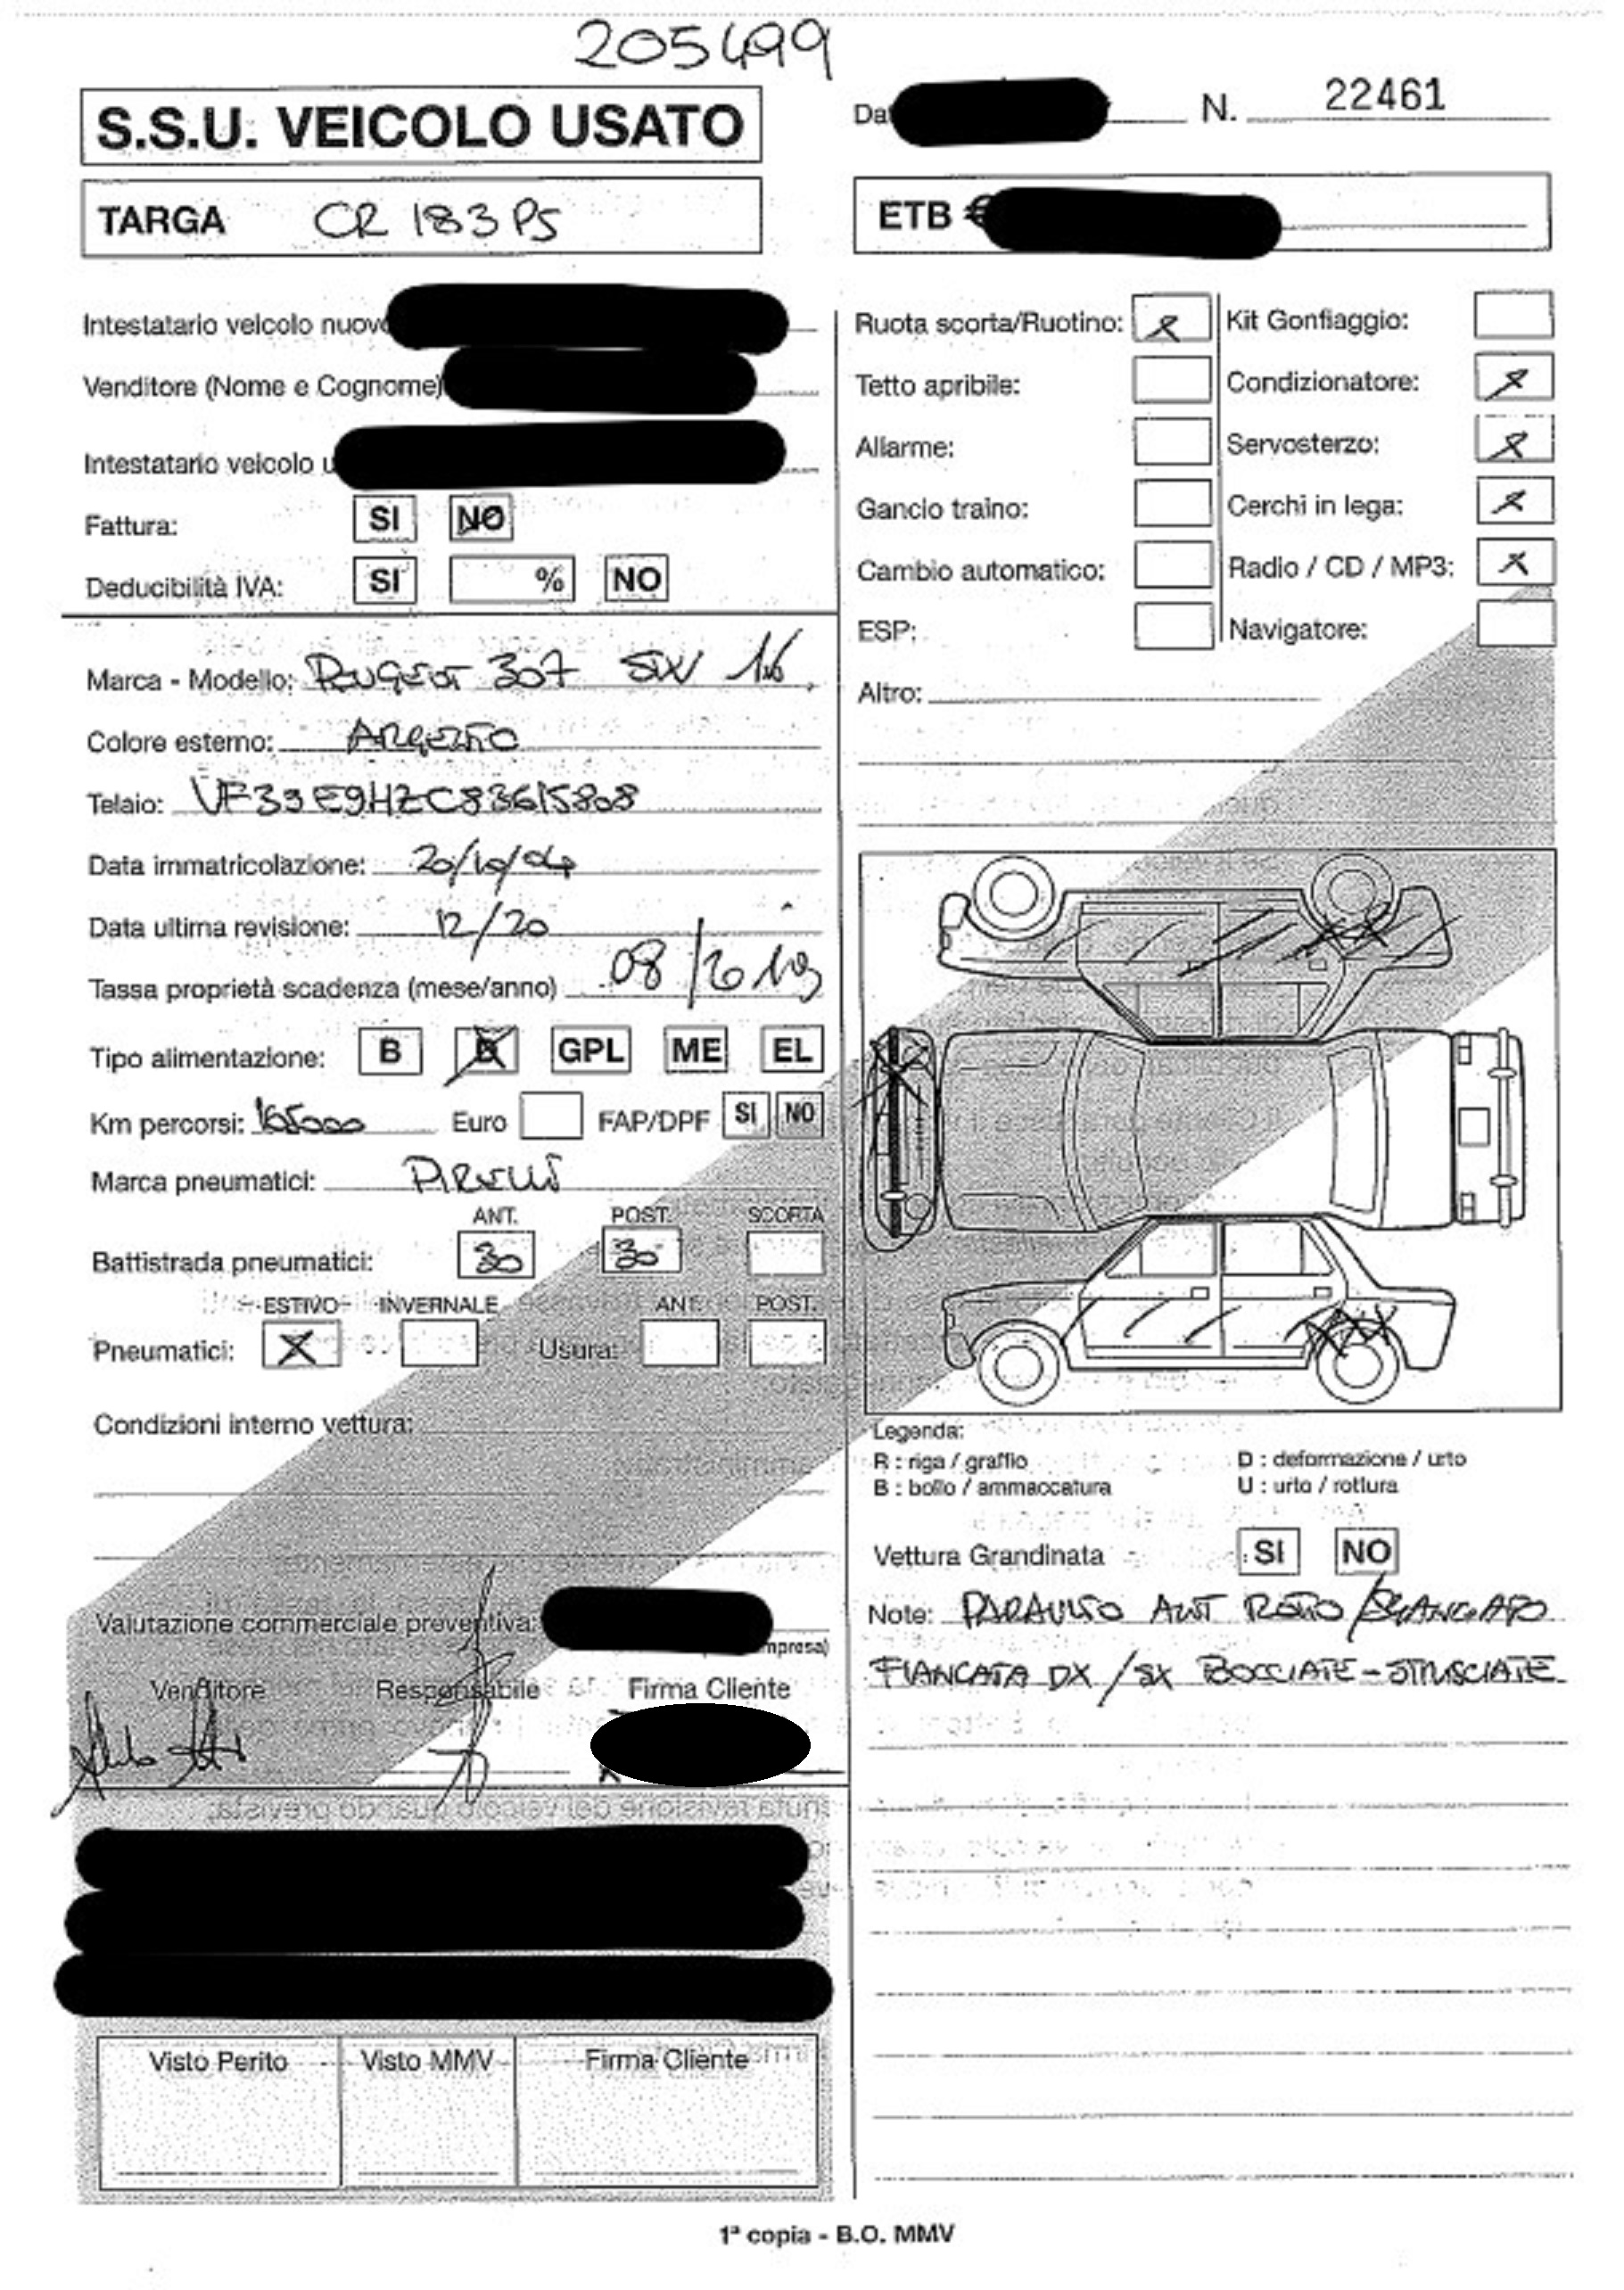 205499
S.S.U. VEICOLO USATO
N. 22461
TARGA CR 183 PS
ETB €
Intestatario veicolo nuovo
Venditore (Nome e Cognome)
Intestatario veicolo u
Fattura: SI NO
Deducibilità IVA: SI % NO
Marca - Modello: PEUGEOT 307 SW 1.6
Colore esterno: ARGENTO
Telaio: VF33E9HZC83615808
Data immatricolazione: 20/10/04
Data ultima revisione: 12/20
Tassa proprietà scadenza (mese/anno) 08/
Tipo alimentazione: B D GPL ME EL
Km percorsi: 165000 Euro FAP/DPF SI NO
Marca pneumatici: PIRELLI
ANT. POST. SCORTA
Battistrada pneumatici: 30 30
ESTIVO INVERNALE ANT. POST.
Pneumatici: X Usura:
Condizioni interno vettura:
Valutazione commerciale preventiva:
mpresa)
Venditore Responsabile Firma Cliente
Visto Perito Visto MMV Firma Cliente
Ruota scorta/Ruotino: X Kit Gonfiaggio:
Tetto apribile: Condizionatore: X
Allarme: Servosterzo: X
Gancio traino: Cerchi in lega: X
Cambio automatico: Radio / CD / MP3: X
ESP: Navigatore:
Altro:
Legenda:
R : riga / graffio D : deformazione / urto
B : bollo / ammaccatura U : urto / rottura
Vettura Grandinata SI NO
Note: PARAURTO ANT ROTTO /SGANCIATO
FIANCATA DX / SX BOCCIATE - STRUSCIATE
1ª copia - B.O. MMV